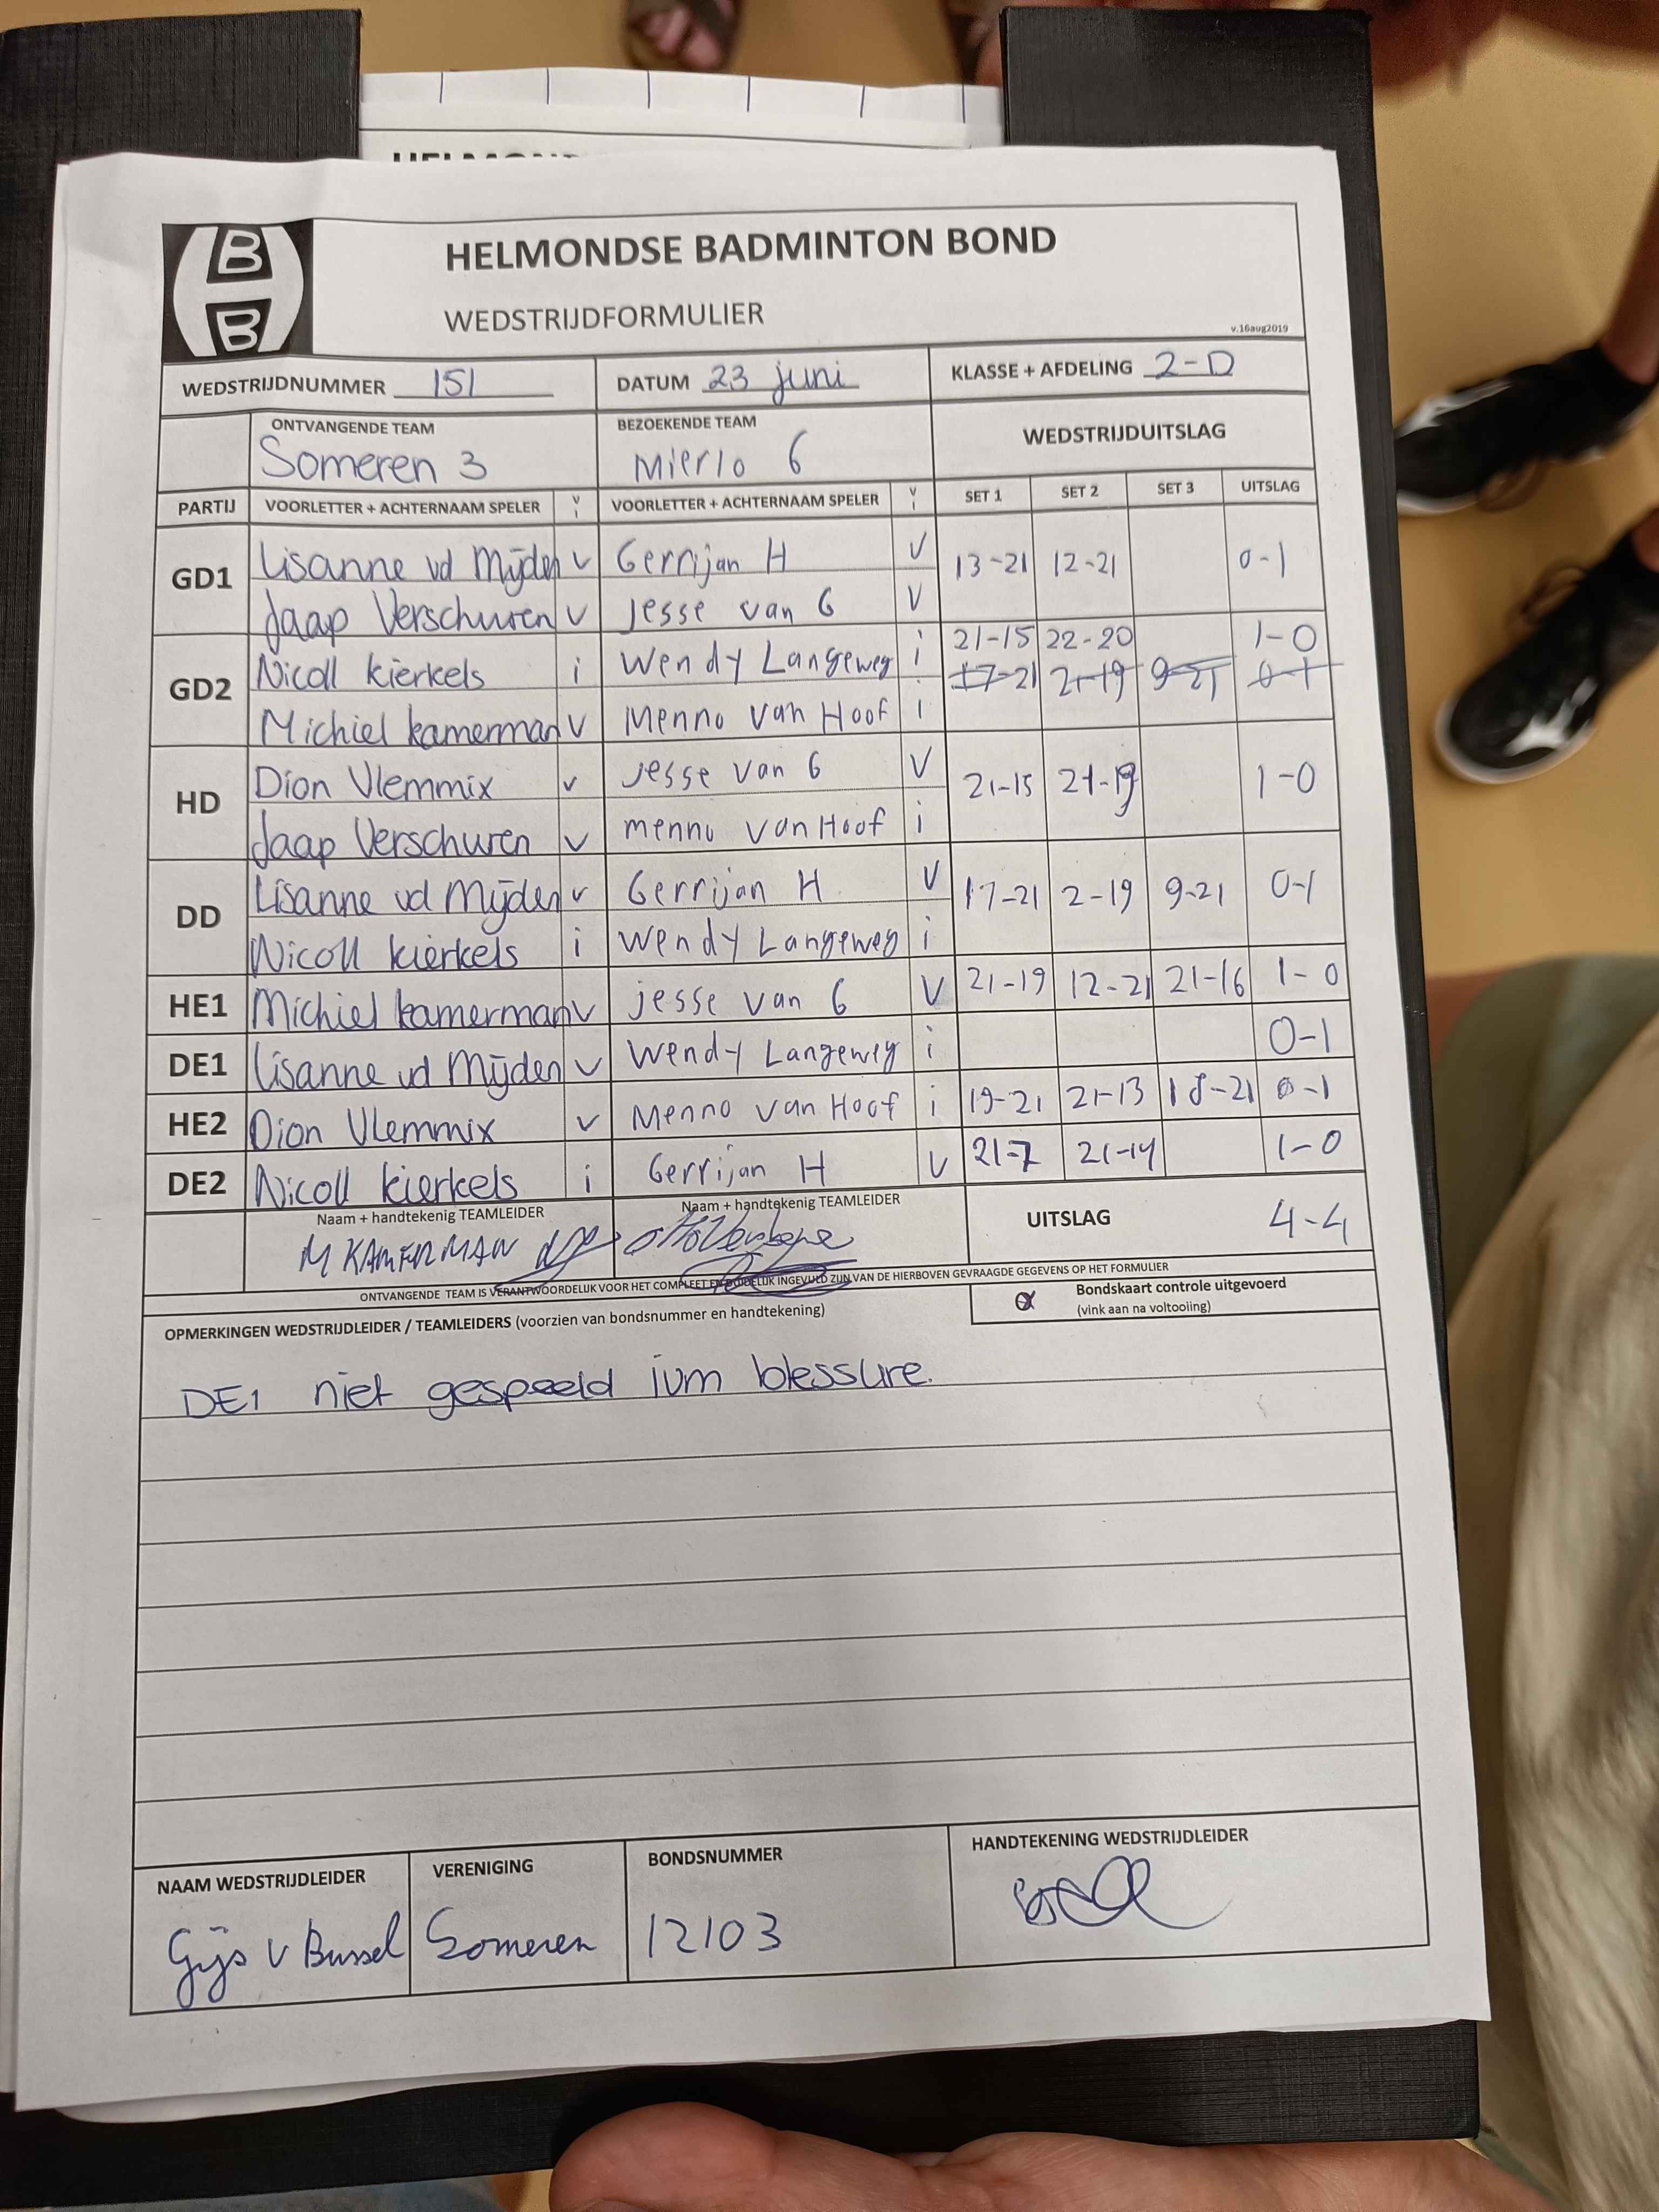 B
B
HELMONDSE BADMINTON BOND
WEDSTRIJDFORMULIER
v.16aug2019
WEDSTRIJDNUMMER 151 DATUM 23 juni KLASSE + AFDELING 2-D
ONTVANGENDE TEAM BEZOEKENDE TEAM WEDSTRIJDUITSLAG
Someren 3 Mierlo 6
PARTIJ VOORLETTER + ACHTERNAAM SPELER V I VOORLETTER + ACHTERNAAM SPELER V I SET 1 SET 2 SET 3 UITSLAG
GD1 Lisanne vd Mijden v Gerrijan H V 13-21 12-21 0-1
Jaap Verschuren v Jesse van G V
GD2 Nicoll kierkels i Wendy Langeweg i 21-15 22-20 1-0
17-21 21-19 9-21 0-1
Michiel kamerman v Menno van Hoof i
HD Dion Vlemmix v jesse van G V 21-15 21-19 1-0
Jaap Verschuren v menno van Hoof i
DD Lisanne vd Mijden v Gerrijan H V 17-21 2-19 9-21 0-1
Nicoll kierkels i Wendy Langeweg i
HE1 Michiel kamerman v jesse van G V 21-19 12-21 21-16 1-0
DE1 Lisanne vd Mijden v Wendy Langeweg i 0-1
HE2 Dion Vlemmix v Menno van Hoof i 19-21 21-13 18-21 0-1
DE2 Nicoll kierkels i Gerrijan H V 21-7 21-14 1-0
Naam + handtekenig TEAMLEIDER Naam + handtekenig TEAMLEIDER UITSLAG 4-4
M KAMERMAN
ONTVANGENDE TEAM IS VERANTWOORDELIJK VOOR HET COMPLEET EN DUIDELIJK INGEVULD ZIJN VAN DE HIERBOVEN GEVRAAGDE GEGEVENS OP HET FORMULIER
Bondskaart controle uitgevoerd
(vink aan na voltooiing)
OPMERKINGEN WEDSTRIJDLEIDER / TEAMLEIDERS (voorzien van bondsnummer en handtekening)
DE1 niet gespeeld ivm blessure.
NAAM WEDSTRIJDLEIDER VERENIGING BONDSNUMMER HANDTEKENING WEDSTRIJDLEIDER
Gijs v Bussel Someren 12103